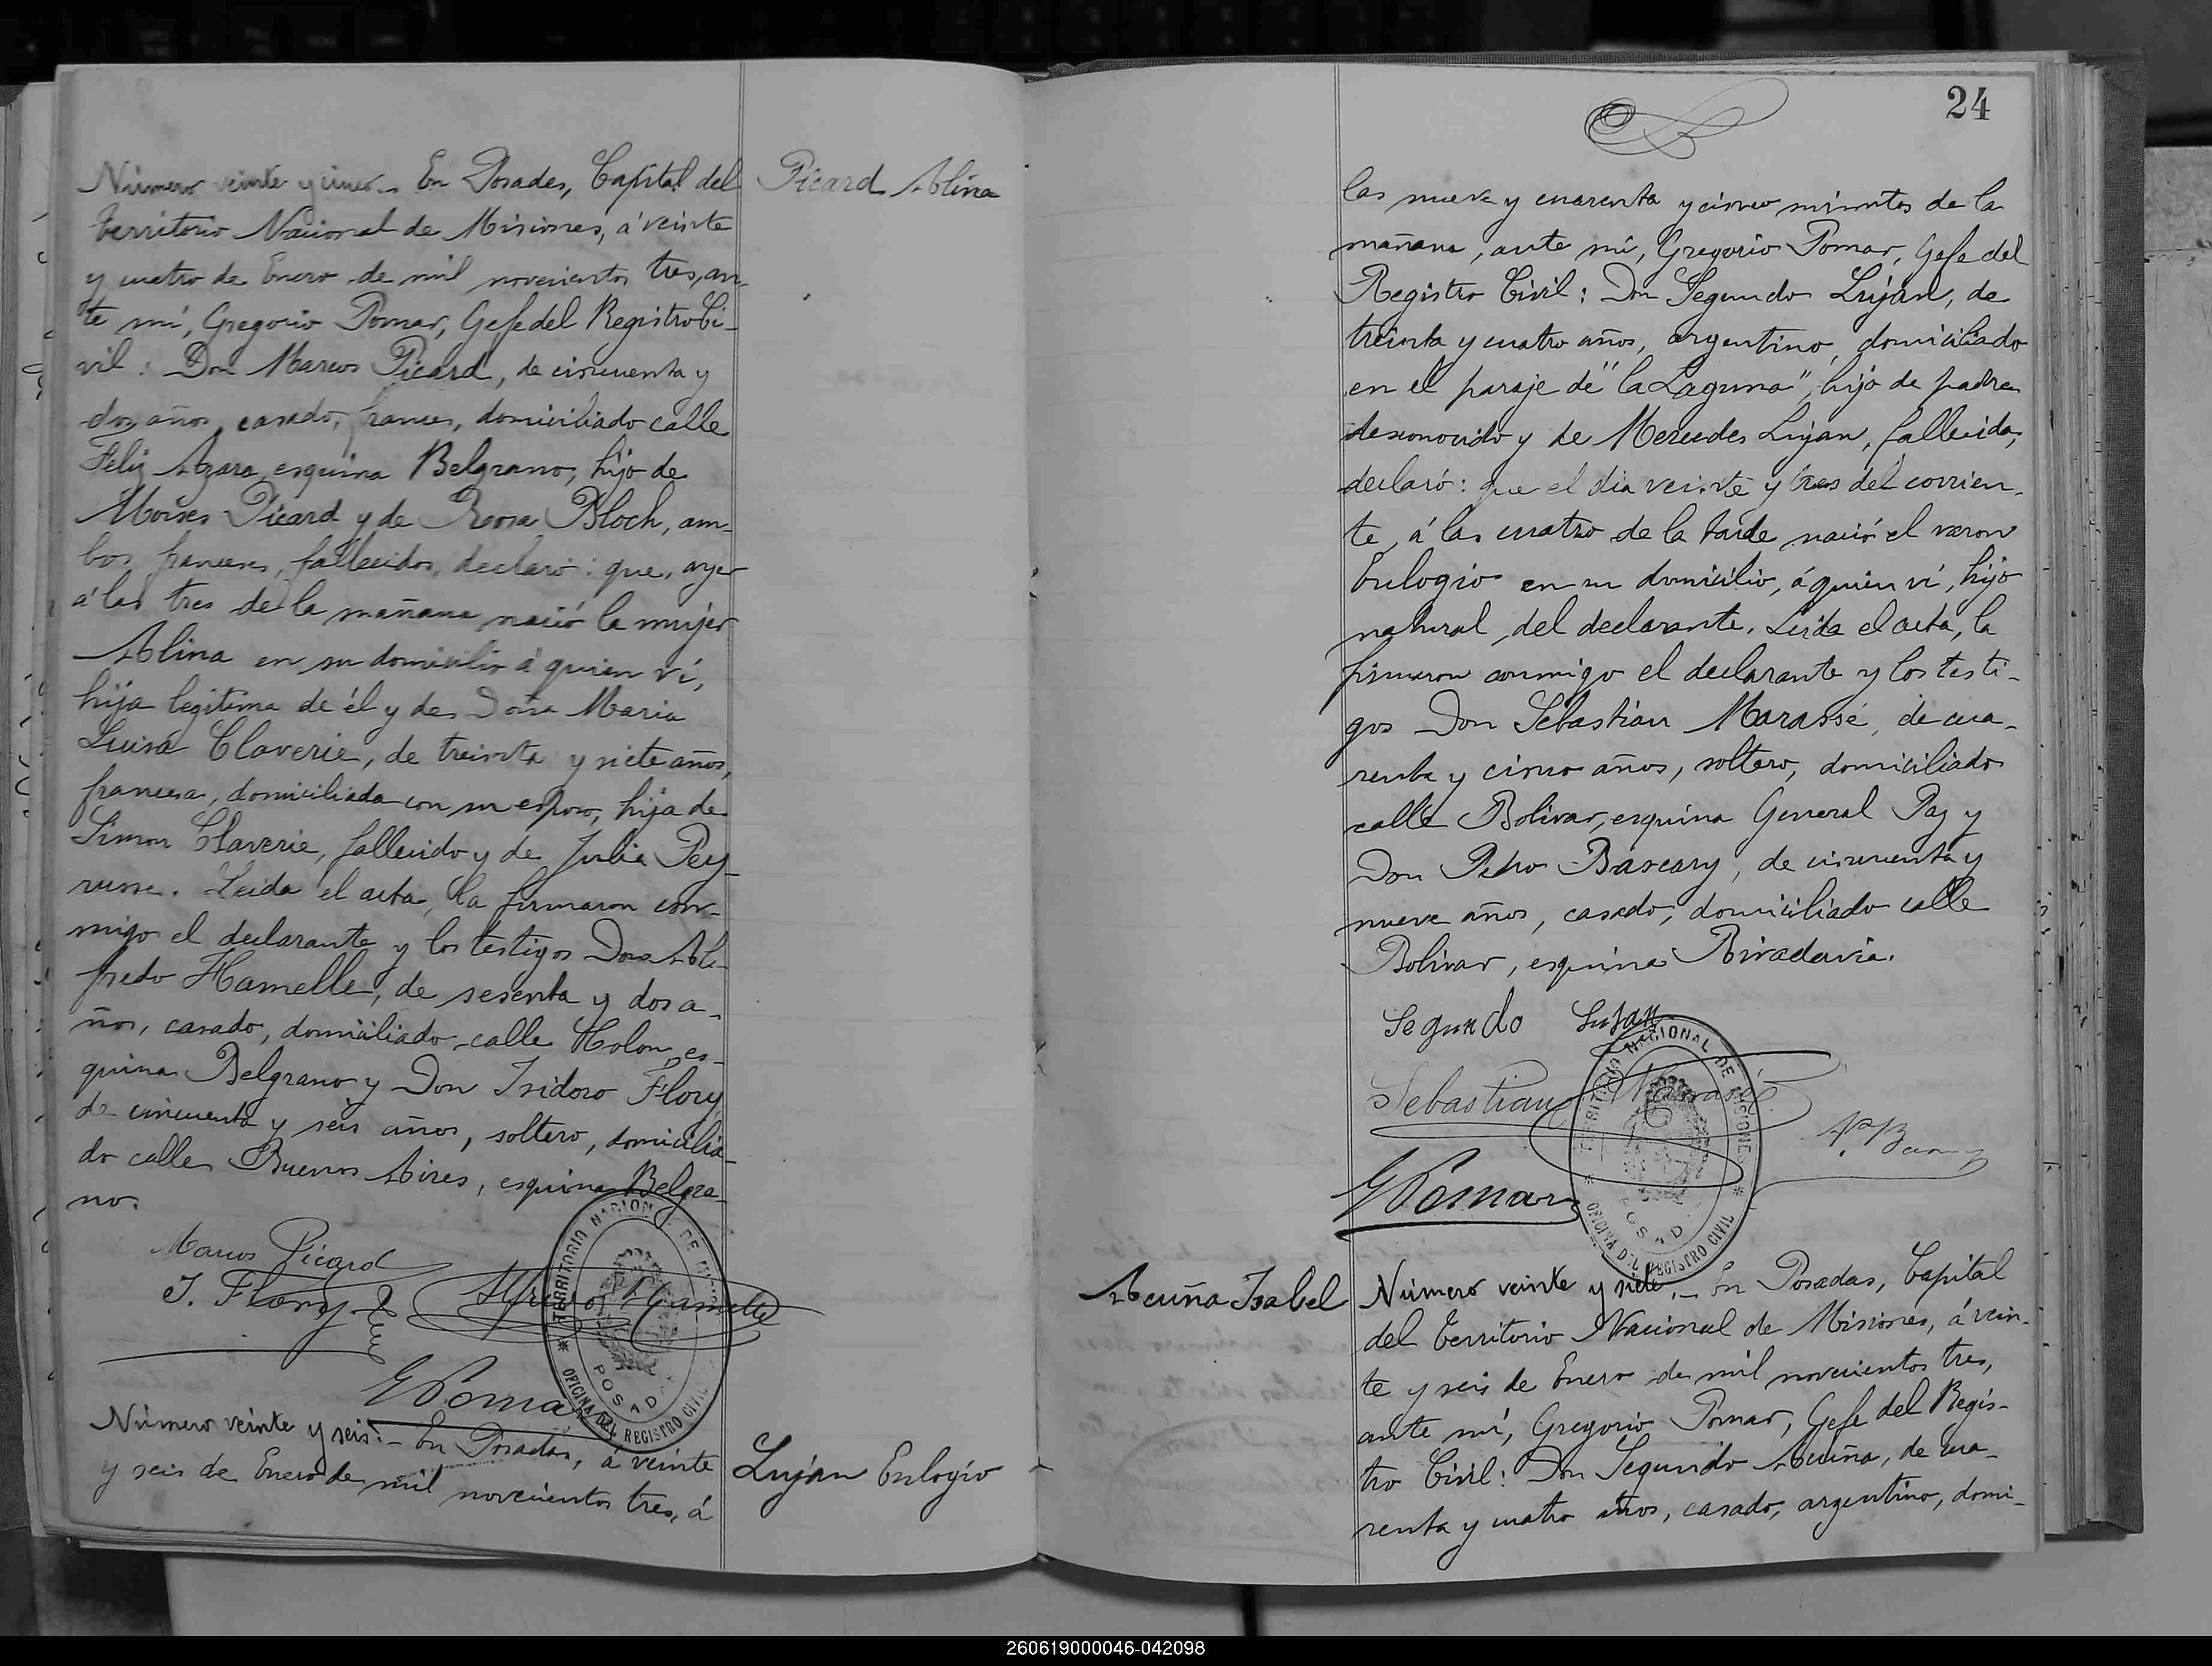 Número veinte y cinco. En Posadas, Capital del
Picard Alina
territorio Nacional de Misiones, á veinte
y cuatro de Enero de mil novecientos tres, an-
te mí, Gregorio Pomar, Gefe del Registro Ci-
vil: Don Marcos Picard, de cincuenta y
dos años, casado, frances, domiciliado calle
Feliz Azara esquina Belgrano, hijo de
Moises Picard y de Rosa Bloch, am-
bos franceses, fallecidos, declaró: que, ayer
á las tres de la mañana nació la mujer
Alina en su domicilio á quien ví,
hija legitima de él y de Doña Maria
Luisa Claverie, de treinta y siete años,
francesa, domiciliada con su esposo, hija de
Simon Claverie, fallecido y de Julia Pey-
russe. Leida el acta, la firmaron con-
migo el declarante y los testigos Don Al-
fredo Hamelle, de sesenta y dos a-
ños, casado, domiciliado calle Colon, es-
quina Belgrano y Don Isidoro Flory
de cincuenta y seis años, soltero, domicilia-
do calle Buenos Aires, esquina Belgra-
no.
Marcos Picard
I. Flory
Alfredo Hamelle
G Pomar
TERRITORIO NACIONAL DE MISIONES
POSADAS
OFICINA DEL REGISTRO CIVIL
Número veinte y seis. - En Posadas, á veinte
y seis de Enero de mil novecientos tres, á
Luján Eulogio
24
las nueve y cuarenta y cinco minutos de la
mañana, ante mí, Gregorio Pomar, Gefe del
Registro Civil: Don Segundo Luján, de
treinta y cuatro años, argentino, domiciliado
en el paraje de "la Laguna", hijo de padre
desconocido y de Mercedes Lujan, fallecida,
declaró: que el dia veinte y tres del corrien-
te, á las cuatro de la tarde nació el varon
Eulogio en su domicilio, á quien ví, hijo
natural del declarante. Leida el acta, la
firmaron conmigo el declarante y los testi-
gos Don Sebastian Marassé, de cua-
renta y cinco años, soltero, domiciliado
calle Bolivar, esquina General Paz y
Don Pedro Bascary, de cincuenta y
nueve años, casado, domiciliado calle
Bolivar, esquina Rivadavia.
Segundo Lujan
Sebastian Marassé
G Pomar
TERRITORIO NACIONAL DE MISIONES
POSADAS
OFICINA DEL REGISTRO CIVIL
Acuña Isabel
Número veinte y siete. - En Posadas, Capital
del territorio Nacional de Misiones, á vein-
te y seis de Enero de mil novecientos tres,
ante mí, Gregorio Pomar, Gefe del Regis-
tro Civil: Don Segundo Acuña, de cua-
renta y cuatro años, casado, argentino, domi-
260619000046-042098